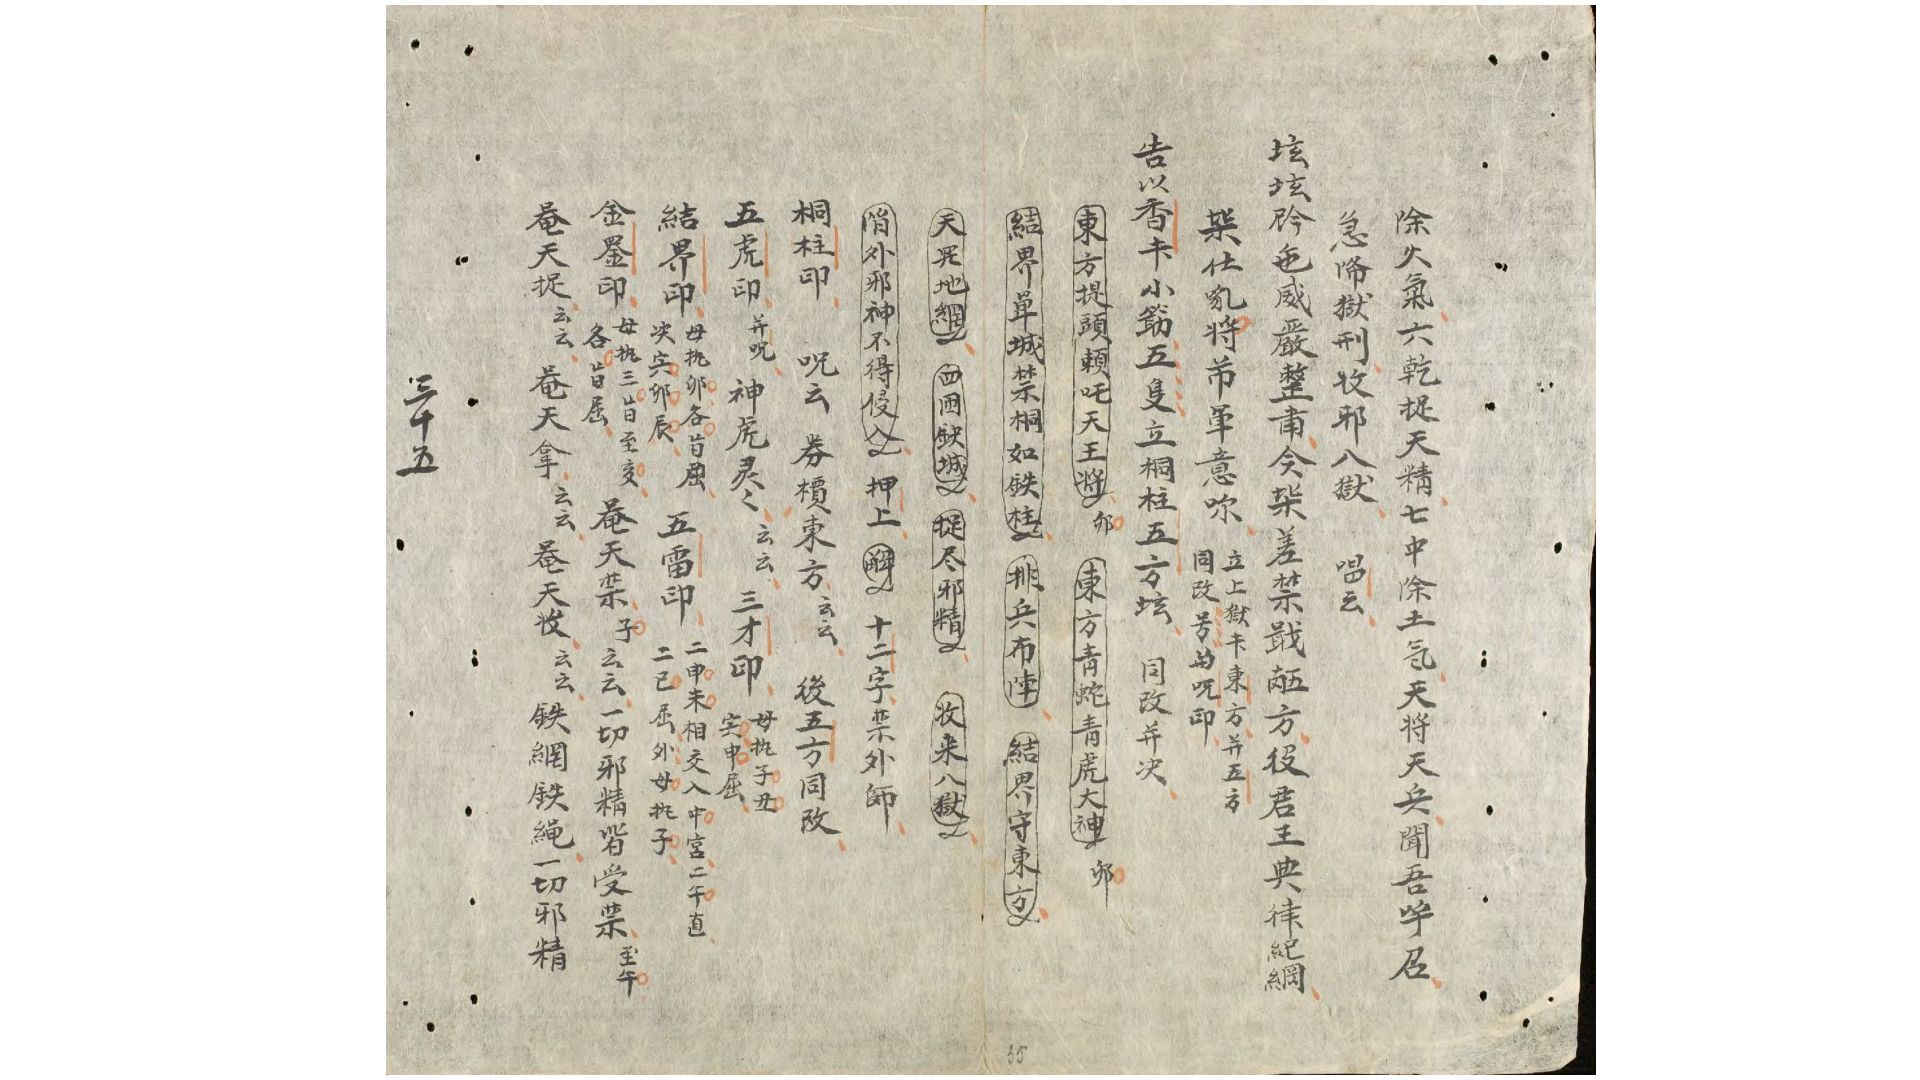 除火氣六乾捉天精七中除土気天将天兵聞吾呼召
急啼獄刑收邪八獄 唱云
坛坛矜色威嚴整肅今柴差禁戢方役君王典律紀綱
柴仕乱将帀軍意
立上獄卡東方并五方
同改号曲呪印
告以香卡小筯五隻立桐柱五方坛 同改并决
東方提頭頼吒天王将 卯 東方青蛇青虎大神 卯
結界單城禁桐如鉄柱 排兵布陣 結界守東方
天罗地網 四囲鉄城 捉尽邪精 收来八獄
外邪神不得侵入 押上 解 十二字禁外師
桐柱印 呪云 券櫝東方云云 後五方同改
五虎印 并呪 神虎灵〻云云 三才印 母执子丑
寅申屈
結界印 母执卯各旨屈
决寅卯辰 五雷印 二申未相交入中宮二午直
二巳屈外母执子
金罡印 母执三旨至亥
各旨屈 菴天禁子云云一切邪精皆受禁 至午
菴天捉云云 菴天拿云云 菴天收云云 鉄網鉄繩一切邪精
三十五
35